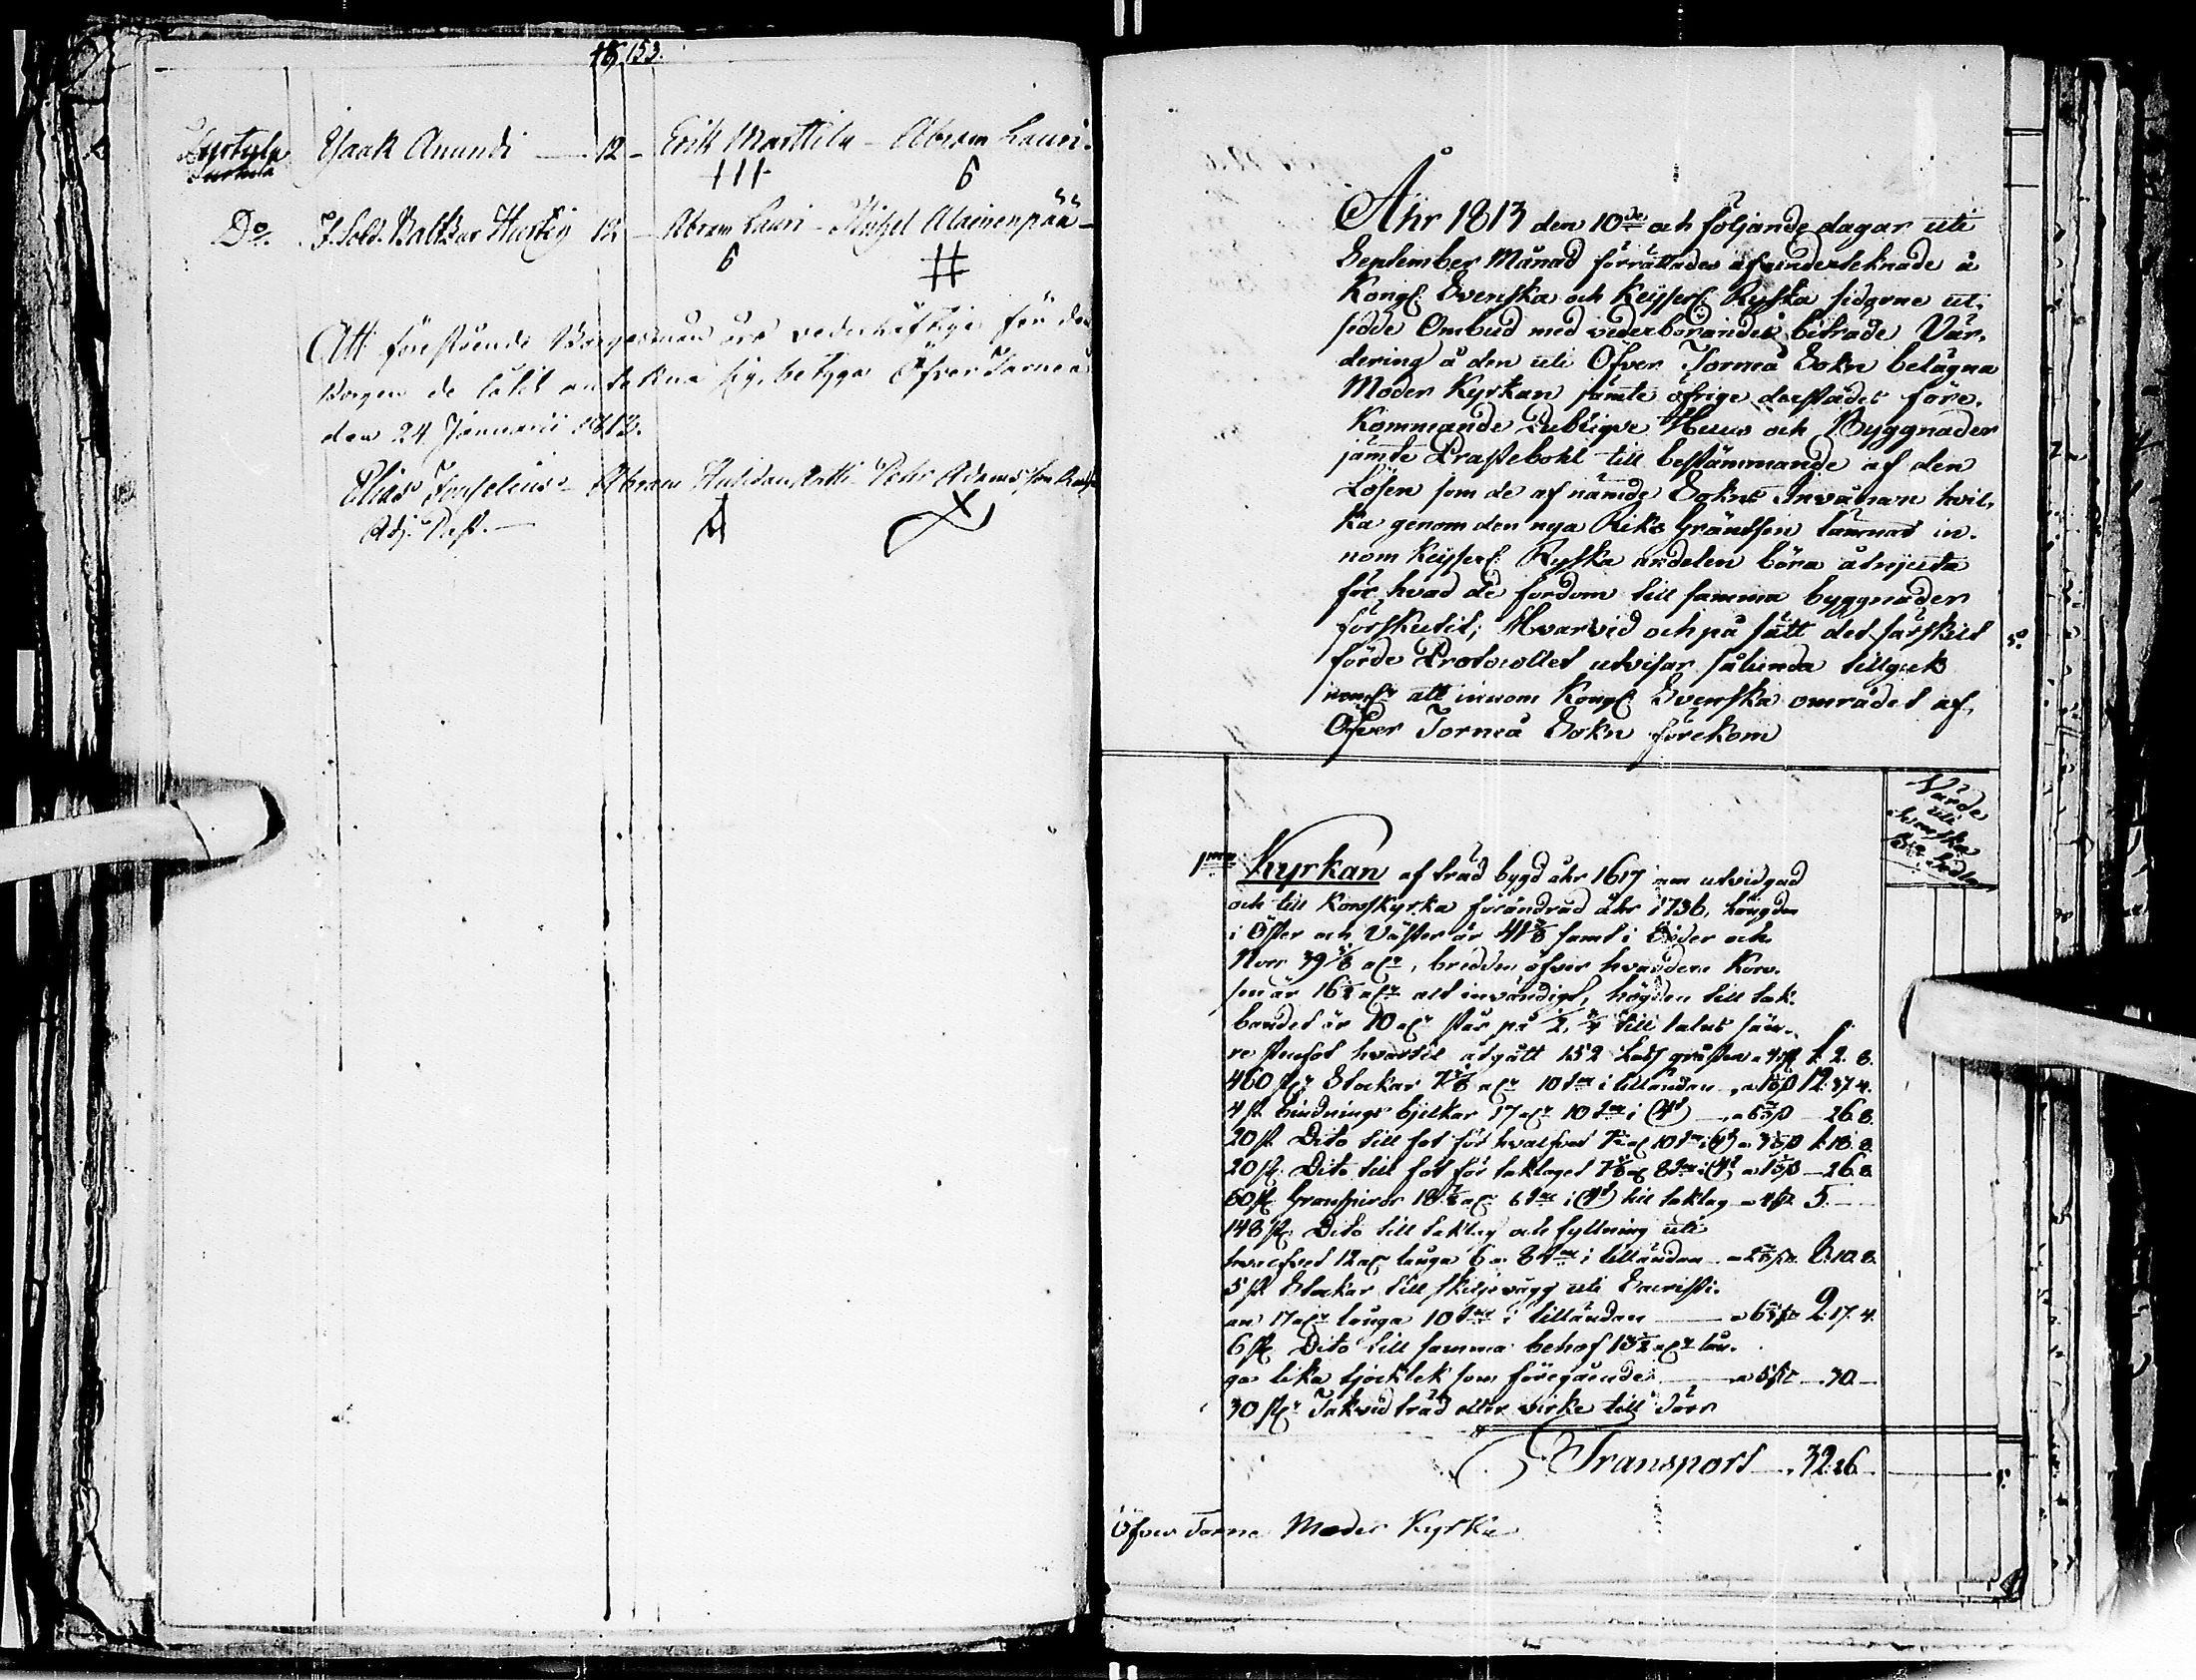 153.
Isaak Anundi — 12 — Erik Marttila — Abram Lauri.
Do. F. Sold. Baltzar Hurtig 12 — Abram Lauri — Michel Alainenpää —
Att förestående Borgesmän äro vederhäftige för den
Borgen de låtit anteckna sig, betyga Öfver Torneå
den 24 Januarii 1813.
Elias Fonselius — Abram — Pehr Adamsson
Adj. Past. —
Åhr 1813 den 10de och följande dagar uti
September Månad förrättades af undertecknade å
Kongl. Svenska och Keyserl. Ryska sidorne ut-
sedde Ombud med vederbörandes biträde Vär-
dering å den uti Öfver Torneå Sokn belägna
Moder Kyrkan jämte öfrige derstädes före-
kommande Publique Huus och Byggnader
jämte Prästebohl till bestämmande af den
Lösen som de af nämde Sokns Invånare hvil-
ka genom den nya Riks Gräntsen lämnas in-
nom Keyserl. Ryska andelen böra åtnjuta
för hvad de fordom till samma byggnader
förskutit; Hvarvid och på sätt det särskilt
förde Protocollet utvisar sålunda tillgick
neml. att innom Kongl. Svenska området af
Öfver Torneå Sokn förekom
Värde
uti
Svenska
Bco Sedlar
1mo Kyrkan af träd bygd åhr 1617 men utvidgad
och till Korskyrka förändrad åhr 1736, längden
i Öster och Väster är 41 5/8 samt i Söder och
Norr 39 5/8 aln, bredden öfver hvardera Kors-
sen är 16 1/2 aln alt invändigt, högden till tak-
bandet är 10 aln står på 1/2, 3/4 till
re stenfot hvartil åtgått 152 Lass gråsten 1. 2. 8.
460 st. Stockar 7 5/8 aln 10 tum i lilländan 12. 37. 4.
4 st. bindnings bjelkar 17 aln 10 tum i — 26. 8.
20 st. Dito till fot för hvalfvet 1. 18. 8.
20 st. Dito till fot för taklaget — 26. 8.
60 st. Gransparrar 18 1/2 aln 6 tum i till taklag 5. —
148 st. Dito till taklag och fyllning uti
hvalfvet 12 aln långa 6 a 8 tum i lilländan 8. 10. 8.
5 st. Stockar till skiljevägg uti Sacristi-
an 17 aln långa 10 tum i lilländan — 2. 17. 4.
6 st. Dito till samma behof 13 1/2 aln lån-
ga lika tjocklek som föregående — 30 —
30 st. Takved träd eller virke till
Transport — 32. 26 —
Öfver Torne Moder Kyrka